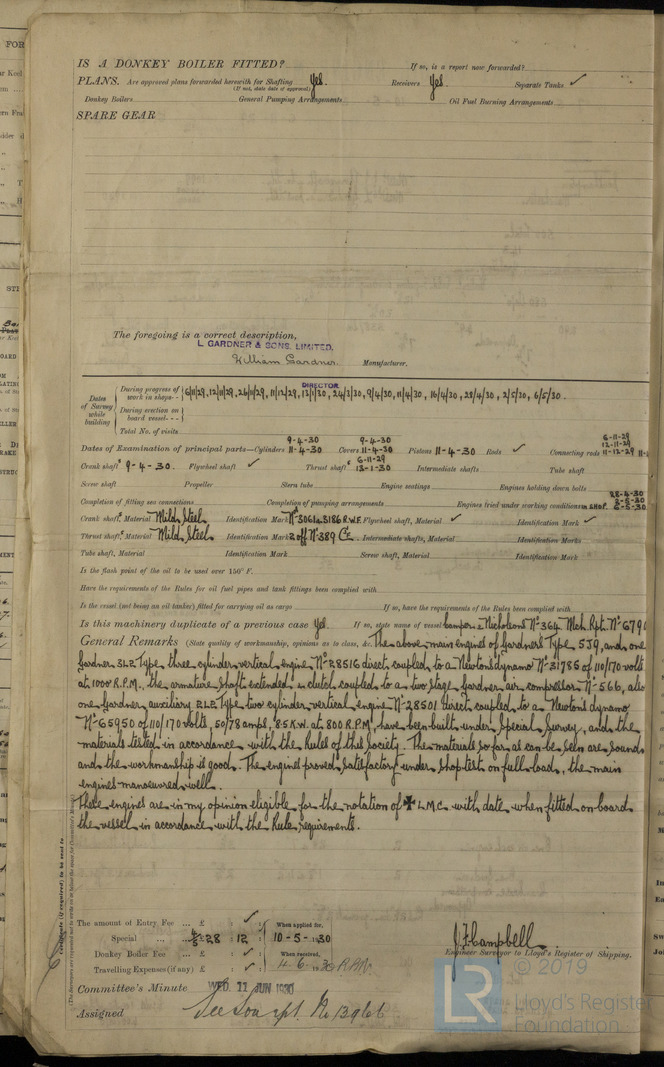 IS A DONKEY BOILER FITTED? If so, is a report now forwarded?
PLANS. Are approved plans forwarded herewith for Shafting Yes. Receivers Yes. Separate Tanks ✓
(If not, state date of approval)
Donkey Boilers General Pumping Arrangements Oil Fuel Burning Arrangements
SPARE GEAR
The foregoing is a correct description,
L GARDNER & SONS. LIMITED.
William Gardner. Manufacturer.
DIRECTOR
Dates of Survey while building
During progress of work in shops - - 6/11/29, 12/11/29, 26/11/29, 11/12/29, 13/1/30, 24/3/30, 9/4/30, 11/4/30, 16/4/30, 28/4/30, 2/5/30, 6/5/30.
During erection on board vessel - - -
Total No. of visits
Dates of Examination of principal parts—Cylinders 9-4-30 11-4-30 Covers 9-4-30 11-4-30 Pistons 11-4-30 Rods ✓ Connecting rods 6-11-29 12-11-29 11-12-29
Crank shafts 9-4-30. Flywheel shaft ✓ Thrust shafts 6-11-29 13-1-30 Intermediate shafts Tube shaft
Screw shaft Propeller Stern tube Engine seatings Engines holding down bolts
Completion of fitting sea connections Completion of pumping arrangements Engines tried under working conditions IN SHOP. 28-4-30 2-5-30 6-5-30
Crank shafts, Material Mild Steel Identification Mark Nº3061&3186 R.W.F. Flywheel shaft, Material ✓ Identification Mark ✓
Thrust shafts, Material Mild Steel Identification Mark 2 off Nº389 Intermediate shafts, Material Identification Marks
Tube shaft, Material Identification Mark Screw shaft, Material Identification Mark
Is the flash point of the oil to be used over 150° F.
Have the requirements of the Rules for oil fuel pipes and tank fittings been complied with
Is the vessel (not being an oil tanker) fitted for carrying oil as cargo If so, have the requirements of the Rules been complied with
Is this machinery duplicate of a previous case Yes. If so, state name of vessel Camper & Nicholsons Nº 364 Mch. Rpt. Nº 6791
General Remarks (State quality of workmanship, opinions as to class, &c. The above main engines of Gardners Type 5J9, and one
Gardner 3L2 Type three cylinder vertical engine Nº 28516 direct coupled to a Newtons dynamo Nº 31785 of 110/170 volts
at 1000 R.P.M. the armature shaft extended & clutch coupled to a two stage Gardner air compressor Nº 566, also
one Gardner auxiliary 2L2 Type two cylinder vertical engine Nº 28501 direct coupled to a Newtons dynamo
Nº 65950 of 110/170 volts, 50/78 amps, 8.5 K.W. at 800 R.P.M., have been built under Special Survey, and the
materials tested in accordance with the Rules of this Society. The materials so far as can be seen are sound
and the workmanship is good. The engines proved satisfactory under shop test on full load, the main
engines manoeuvred well.
These engines are in my opinion eligible for the notation of ✠ L.M.C. with date when fitted on board
the vessel in accordance with the Rule requirements.
The amount of Entry Fee ... £ ✓ When applied for,
Special ... ... £ 28 : 12 : 10-5-1930
Donkey Boiler Fee ... £ ✓ When received,
Travelling Expenses (if any) £ ✓ 4 6 1930
J. F. Campbell
Engineer Surveyor to Lloyd's Register of Shipping.
Committee's Minute WED. 11 JUN 1930
Assigned
© 2019
LR Lloyd's Register
Foundation